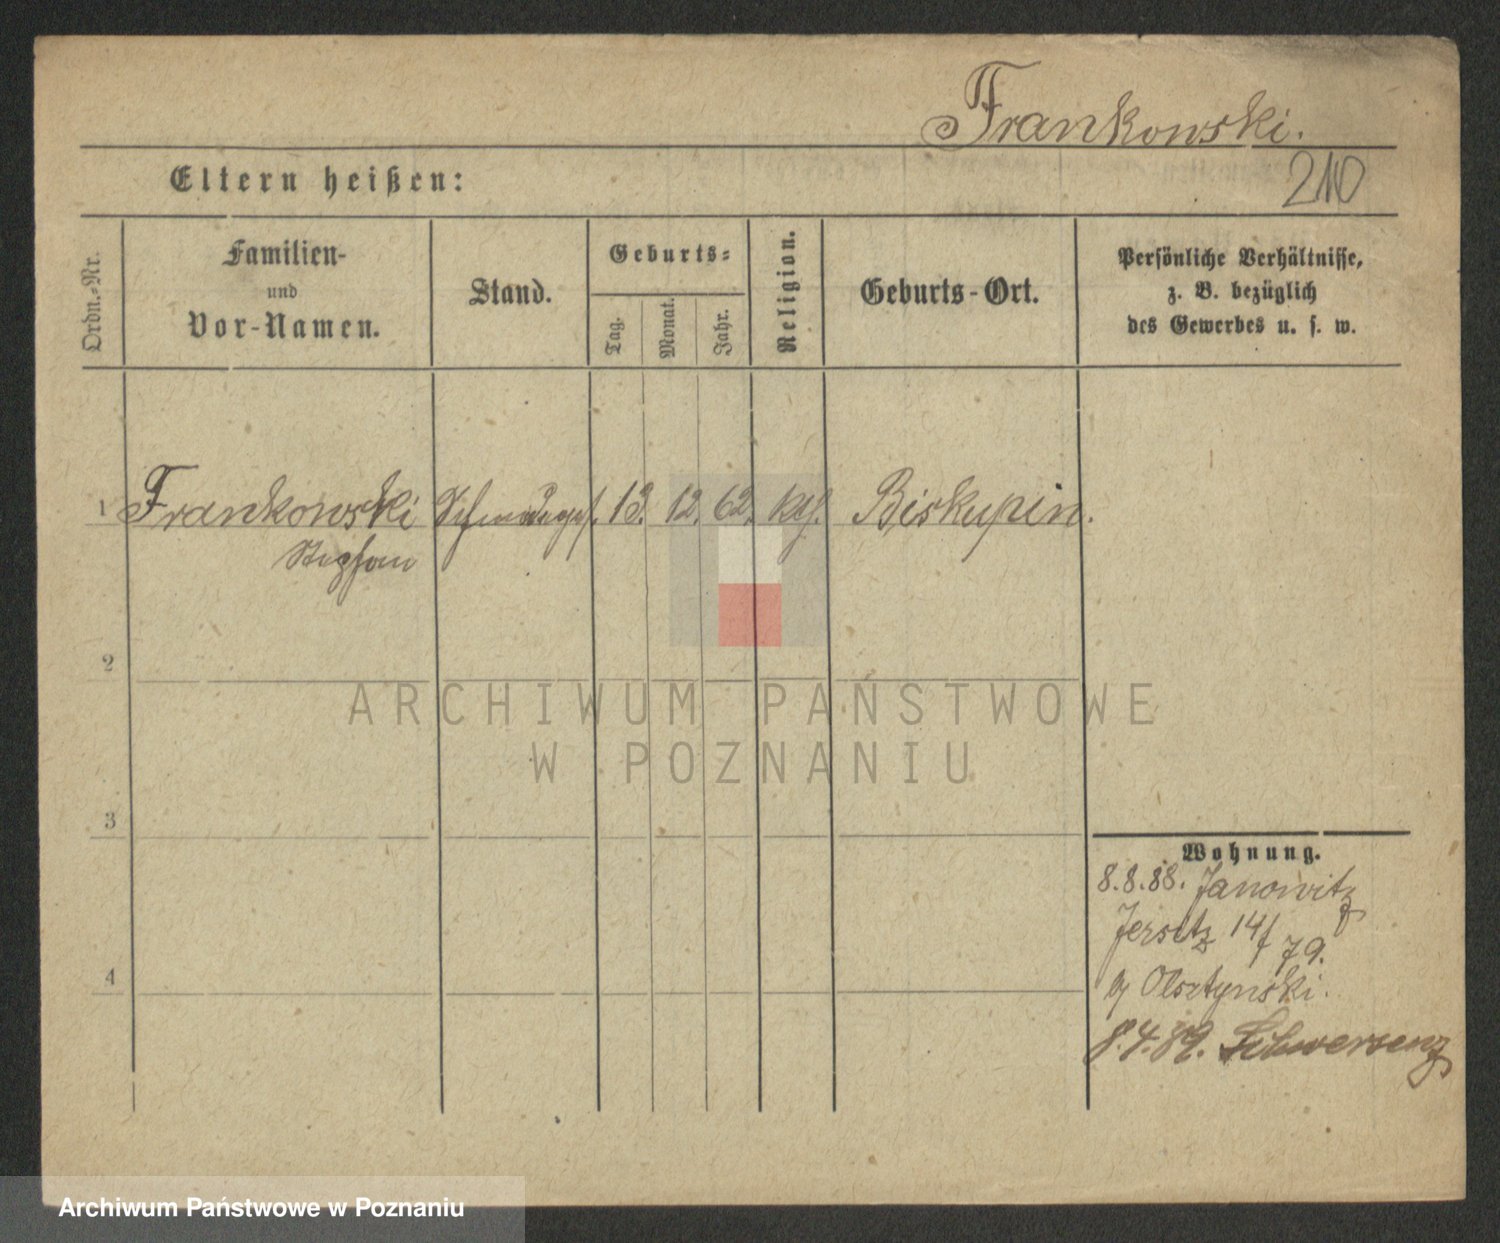 Frankowski.
210
Eltern heißen:
Ordn.-Nr.
Familien-
und
Vor-Namen.
Stand.
Geburts-
Tag.
Monat.
Jahr.
Religion.
Geburts-Ort.
Persönliche Verhältnisse,
z. B. bezüglich
des Gewerbes u. s. w.
1 Frankowski 13. 12. 62. kth. Biskupin.
Stephan
2
3
4
Wohnung.
8.8.88. Janowitz
Jersitz 14/
79.
Olsztynski.
8.4.89. Schwersenz
ARCHIWUM PAŃSTWOWE
W POZNANIU
Archiwum Państwowe w Poznaniu